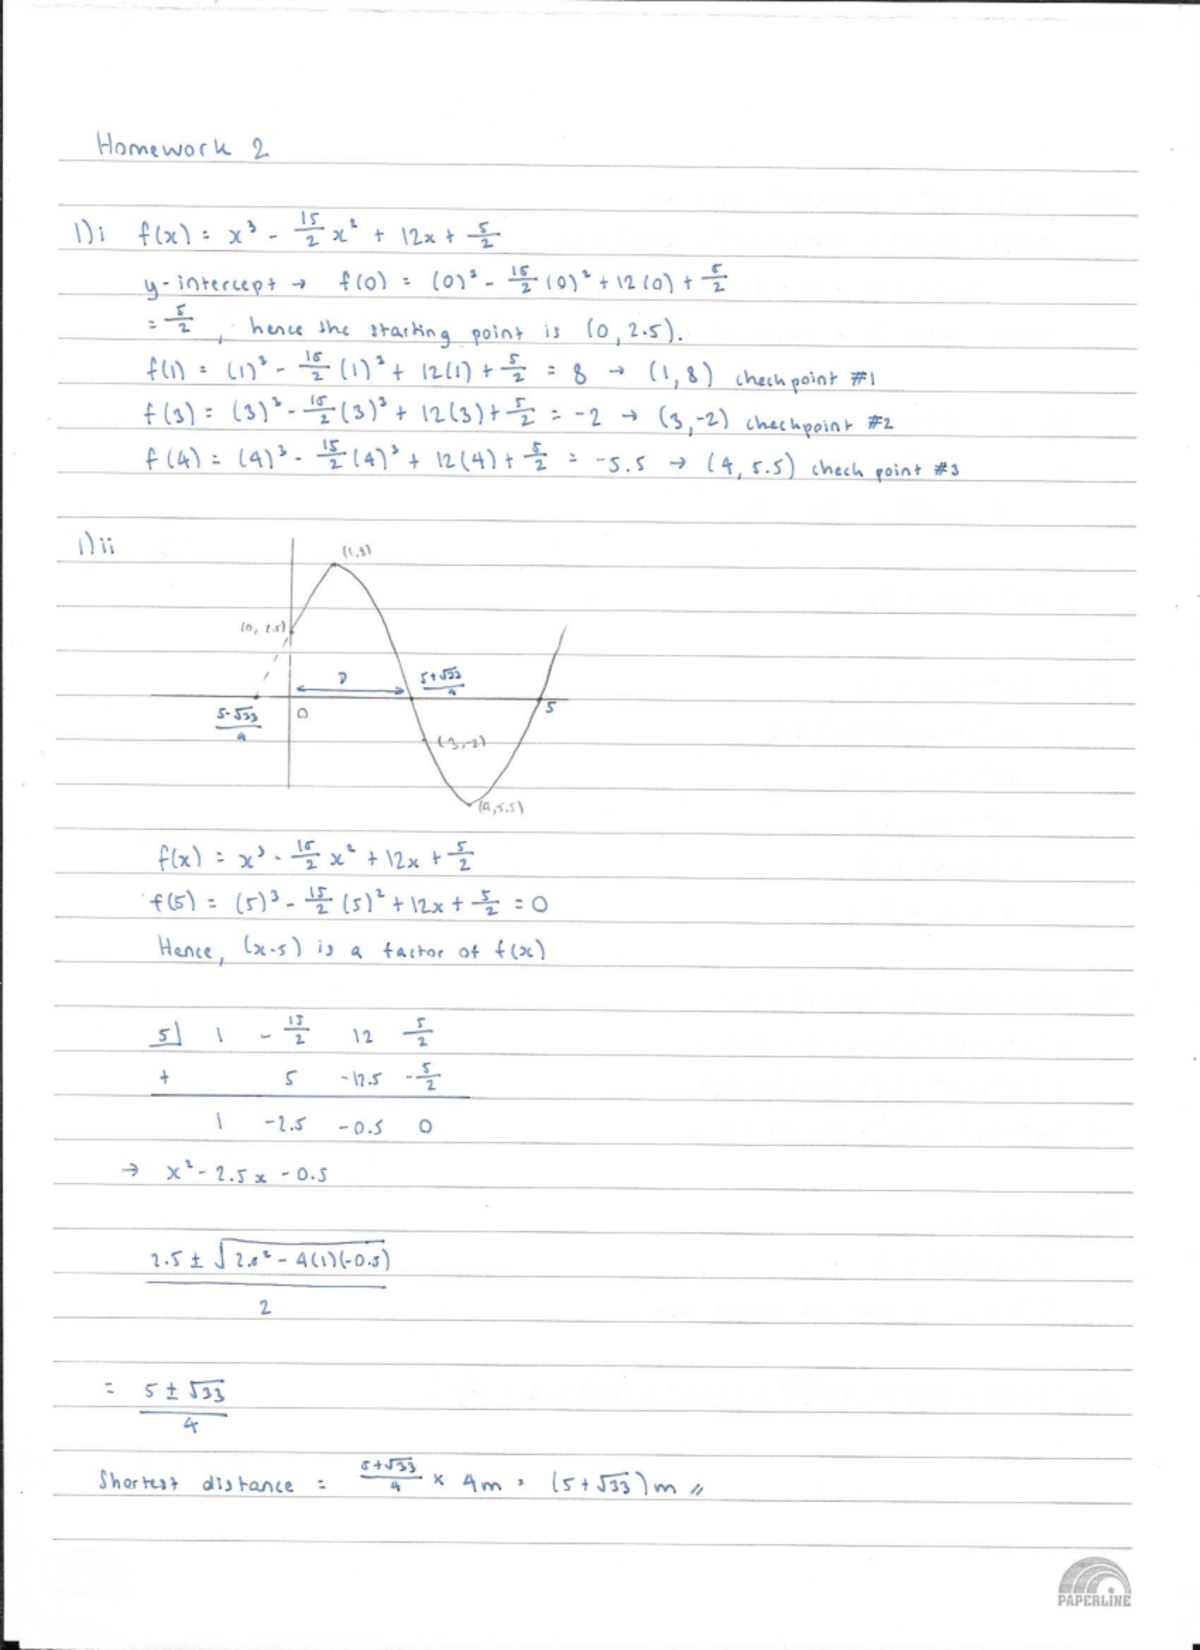 Homework 2
1) i f(x) = x³ - 15/2 x² + 12x + 5/2
y-intercept → f(0) = (0)³ - 15/2 (0)² + 12(0) + 5/2
= 5/2, hence the starting point is (0, 2.5).
f(1) = (1)³ - 15/2 (1)³ + 12(1) + 5/2 = 8 → (1, 8) checkpoint #1
f(3) = (3)³ - 15/2 (3)³ + 12(3) + 5/2 = -2 → (3, -2) checkpoint #2
f(4) = (4)³ - 15/2 (4)³ + 12(4) + 5/2 = -5.5 → (4, 5.5) check point #3
1) ii
(1,8)
(0, 2.5)
D
5+√33/4
5-√33/4
0
5
(3,-2)
(4,5.5)
f(x) = x³ - 15/2 x² + 12x + 5/2
f(5) = (5)³ - 15/2 (5)² + 12x + 5/2 = 0
Hence, (x-5) is a factor of f(x)
5| 1 - 15/2 12 5/2
+ 5 -12.5 - 5/2
1 -2.5 -0.5 0
→ x² - 2.5x - 0.5
2.5 ± √2.5² - 4(1)(-0.5)
2
= 5 ± √33
4
Shortest distance = 5+√33/4 × 4m = (5+√33)m //
PAPERLINE